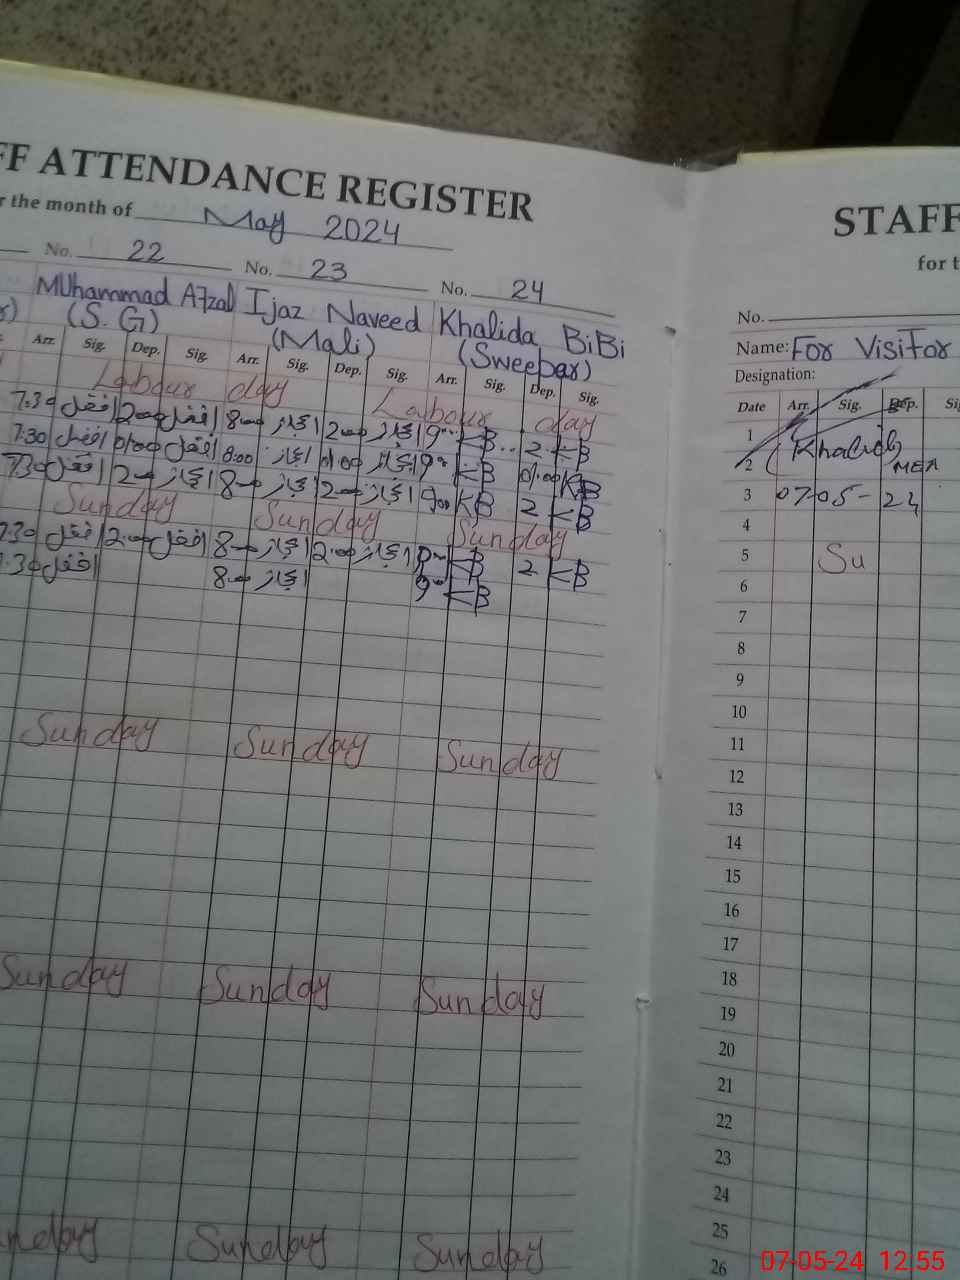 FF ATTENDANCE REGISTER
r the month of May 2024
No. 22 No. 23 No. 24
Muhammad Afzal Ijaz Naveed Khalida BiBi
(S. G) (Mali) (Sweeper)
Arr. Sig. Dep. Sig. Arr. Sig. Dep. Sig. Arr. Sig. Dep. Sig.
Labour day Labour day
7:30 افضل 2:00 افضل 8:00 اعجاز 2:00 اعجاز 9:00 KB 2 KB
7:30 افضل 01:00 افضل 8:00 اعجاز 01:00 اعجاز 9:00 KB 01:00 KB
7:30 افضل 2:00 افضل 8:00 اعجاز 2:00 اعجاز 9:00 KB 2 KB
Sunday Sunday Sunday
7:30 افضل 2:00 افضل 8:00 اعجاز 2:00 اعجاز KB 2 KB
:30 افضل 8:00 اعجاز 9:00 KB
Sunday Sunday Sunday
Sunday Sunday Sunday
unday Sunday Sunday
STAFF
for t
No.
Name: For Visitor
Designation:
Date Arr. Sig. Dep. Sig
1
2 Khalid MEA
3 07-05-24
4
5 Su
6
7
8
9
10
11
12
13
14
15
16
17
18
19
20
21
22
23
24
25
26
07-05-24 12:55